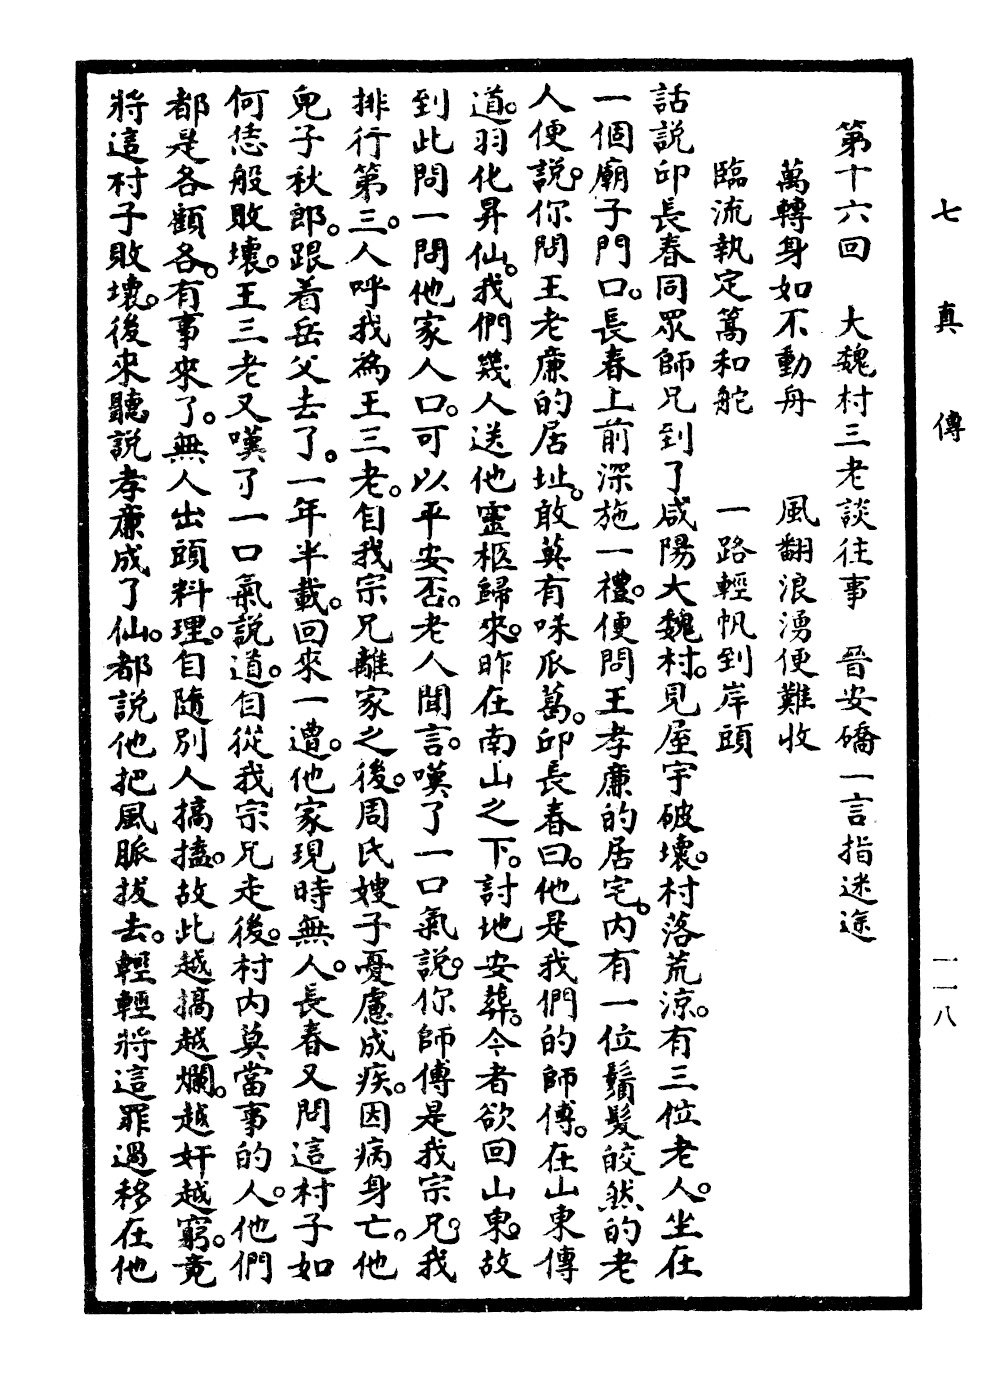 七真傳
一一八
第十六回　大魏村三老談往事　晉安橋一言指迷途
萬轉身如不動舟　風翻浪湧便難收
臨流執定篙和舵　一路輕帆到岸頭
話說邱長春同眾師兄到了咸陽大魏村。見屋宇破壞。村落荒涼。有三位老人。坐在
一個廟子門口。長春上前深施一禮。便問王孝廉的居宅。內有一位鬚髮皎然的老
人便說。你問王老廉的居址。敢莫有呩瓜葛。邱長春曰。他是我們的師傅。在山東傳
道。羽化昇仙。我們幾人送他靈柩歸來。昨在南山之下。討地安葬。今者欲回山東。故
到此問一問他家人口。可以平安否。老人聞言。嘆了一口氣說。你師傅是我宗兄。我
排行第三。人呼我為王三老。自我宗兄離家之後。周氏嫂子憂慮成疾。因病身亡。他
兒子秋郎。跟着岳父去了。一年半載。回來一遭。他家現時無人。長春又問這村子如
何恁般敗壞。王三老又嘆了一口氣說道。自從我宗兄走後。村內莫當事的人。他們
都是各顧各。有事來了。無人出頭料理。自隨別人搞搕。故此越搞越爛。越奸越窮。竟
將這村子敗壞。後來聽說孝廉成了仙。都說他把風脈拔去。輕輕將這罪過移在他